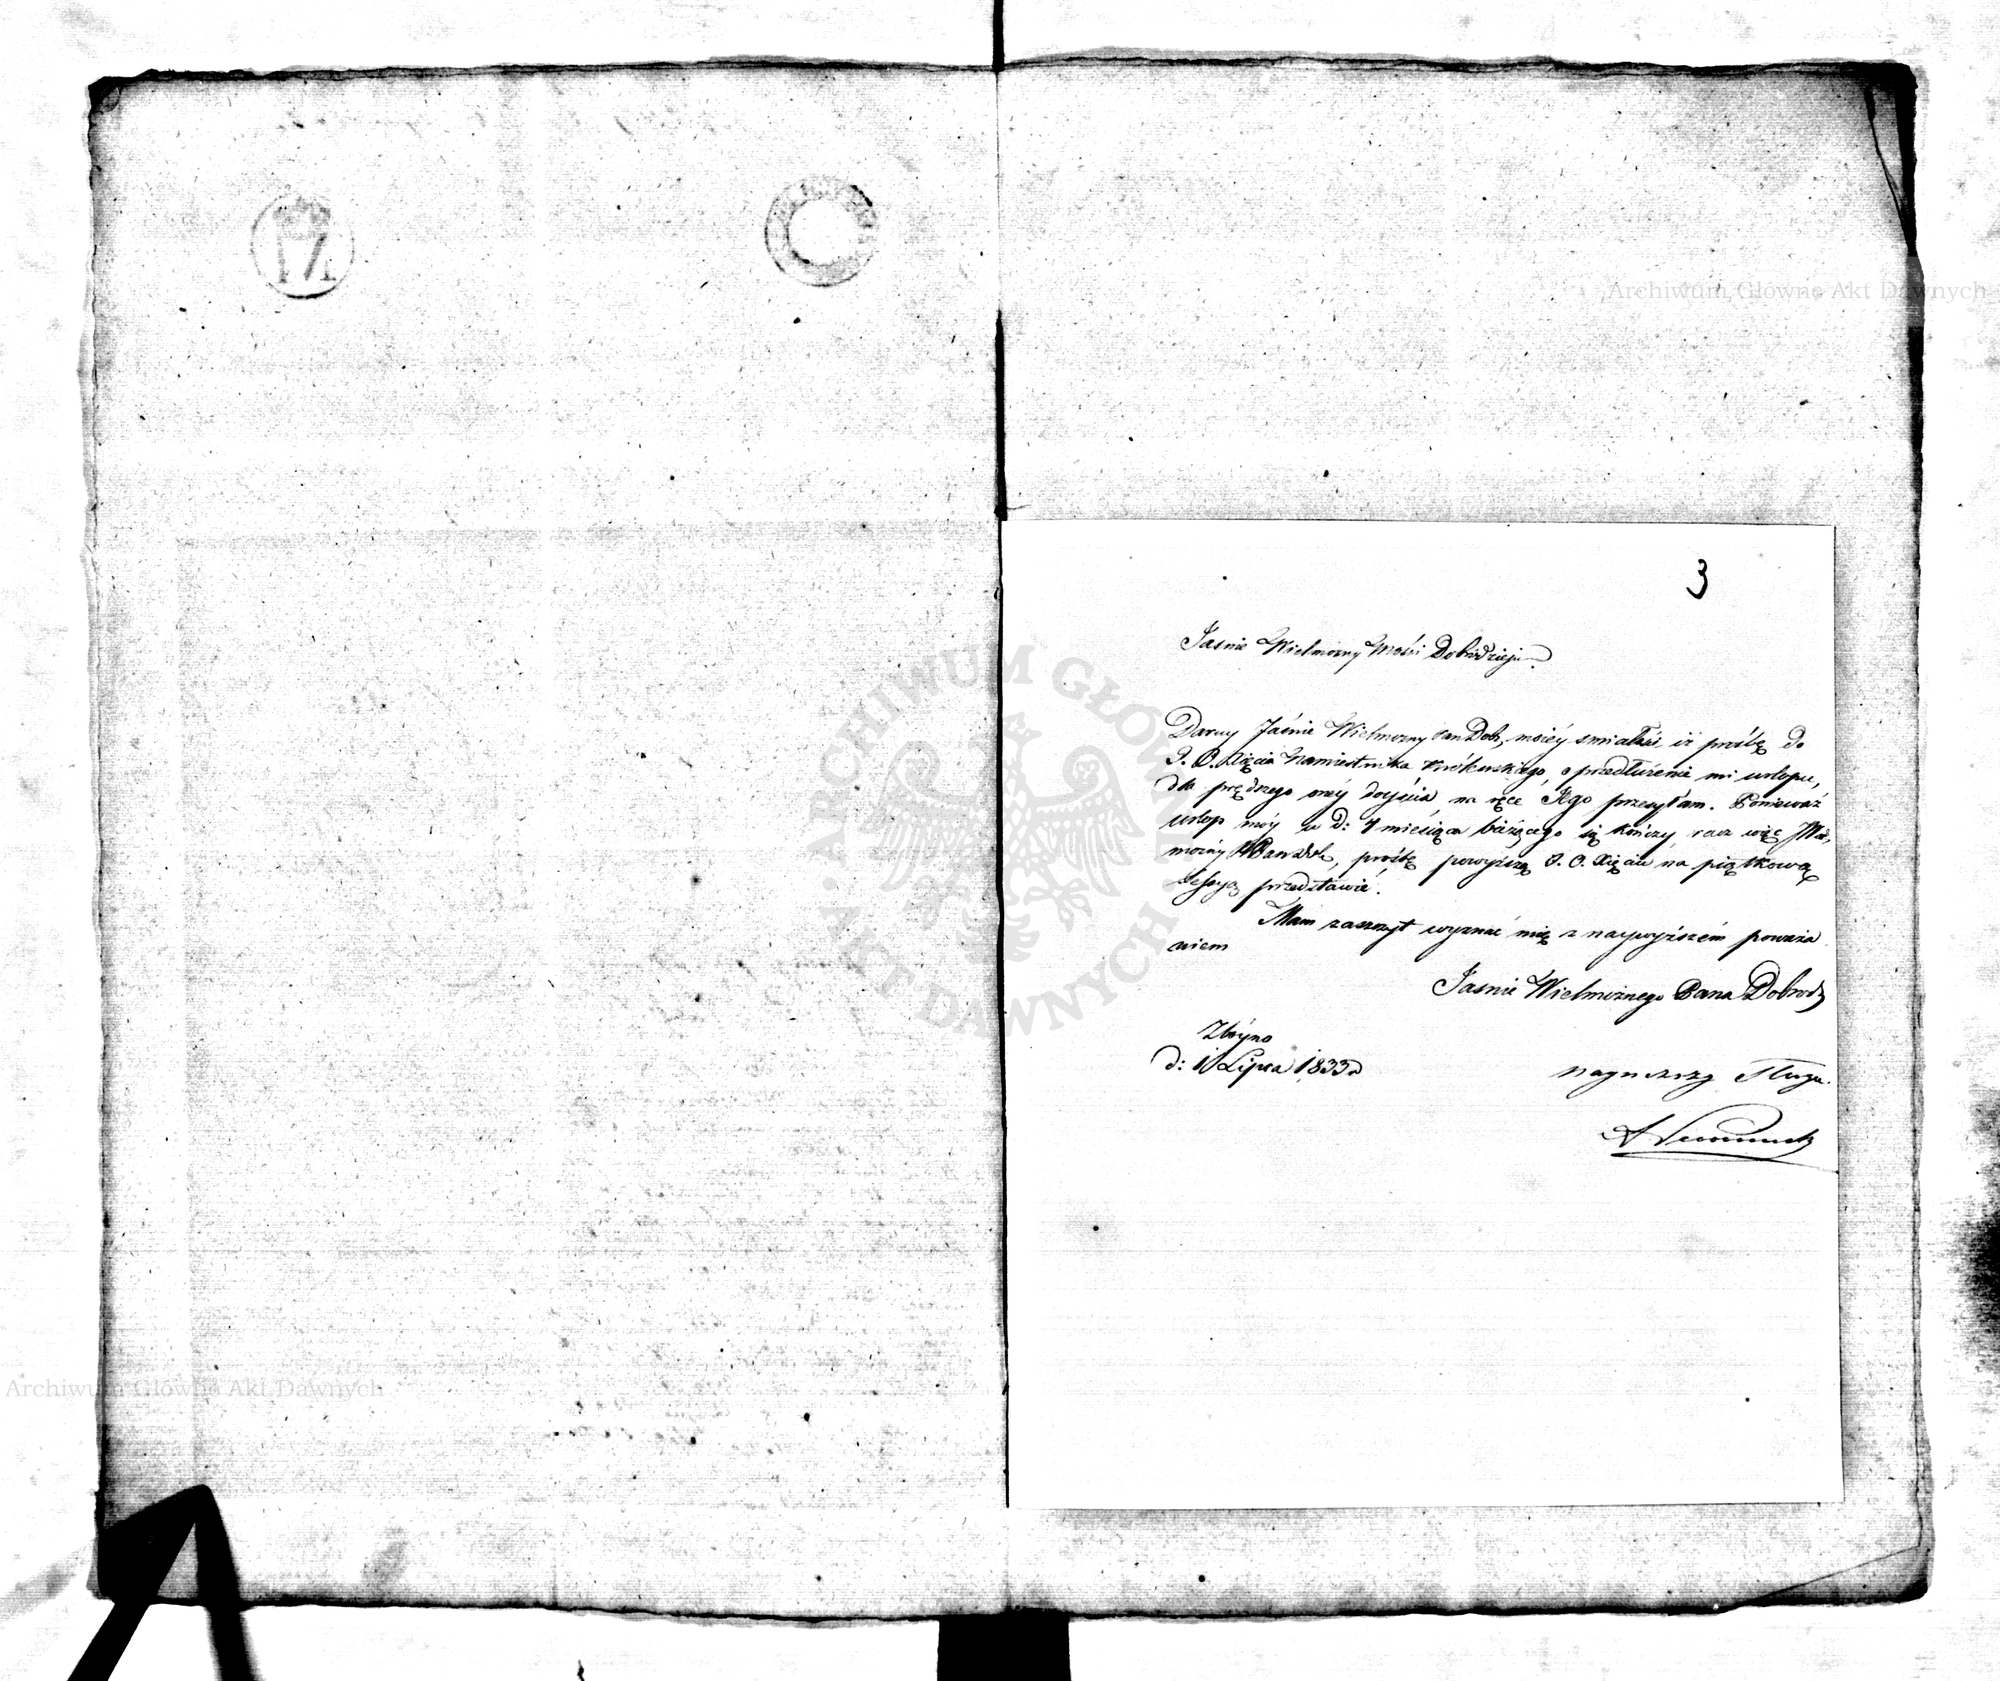 3
Jasnie Wielmożny Mości Dobrodzieju.
Daruy Jaśnie Wielmożny Pan Dob, moiéy smiałości, iż prośbę do
J. O. Xięcia Namiestnika Królewskiego, o przedłużenie mi urlopu,
dla prędszego onéy doyścia na ręce Jego przesyłam. Ponieważ
urlop móy w d: 4 miesiąca bieżącego się kończy, racz więc
prośbę powyższą J. O. Xięciu na piątkową
Sessyą przedstawić.
Mam zaszczyt wyznać mię z naywyższém poważa
niem
Jasnie Wielmożnego Pana Dobrodz
d: 1 Lipca 1833
nayniższy Sługa.
Archiwum Główne Akt Dawnych
Archiwum Główne Akt Dawnych
ARCHIWUM GŁÓWNE AKT DAWNYCH